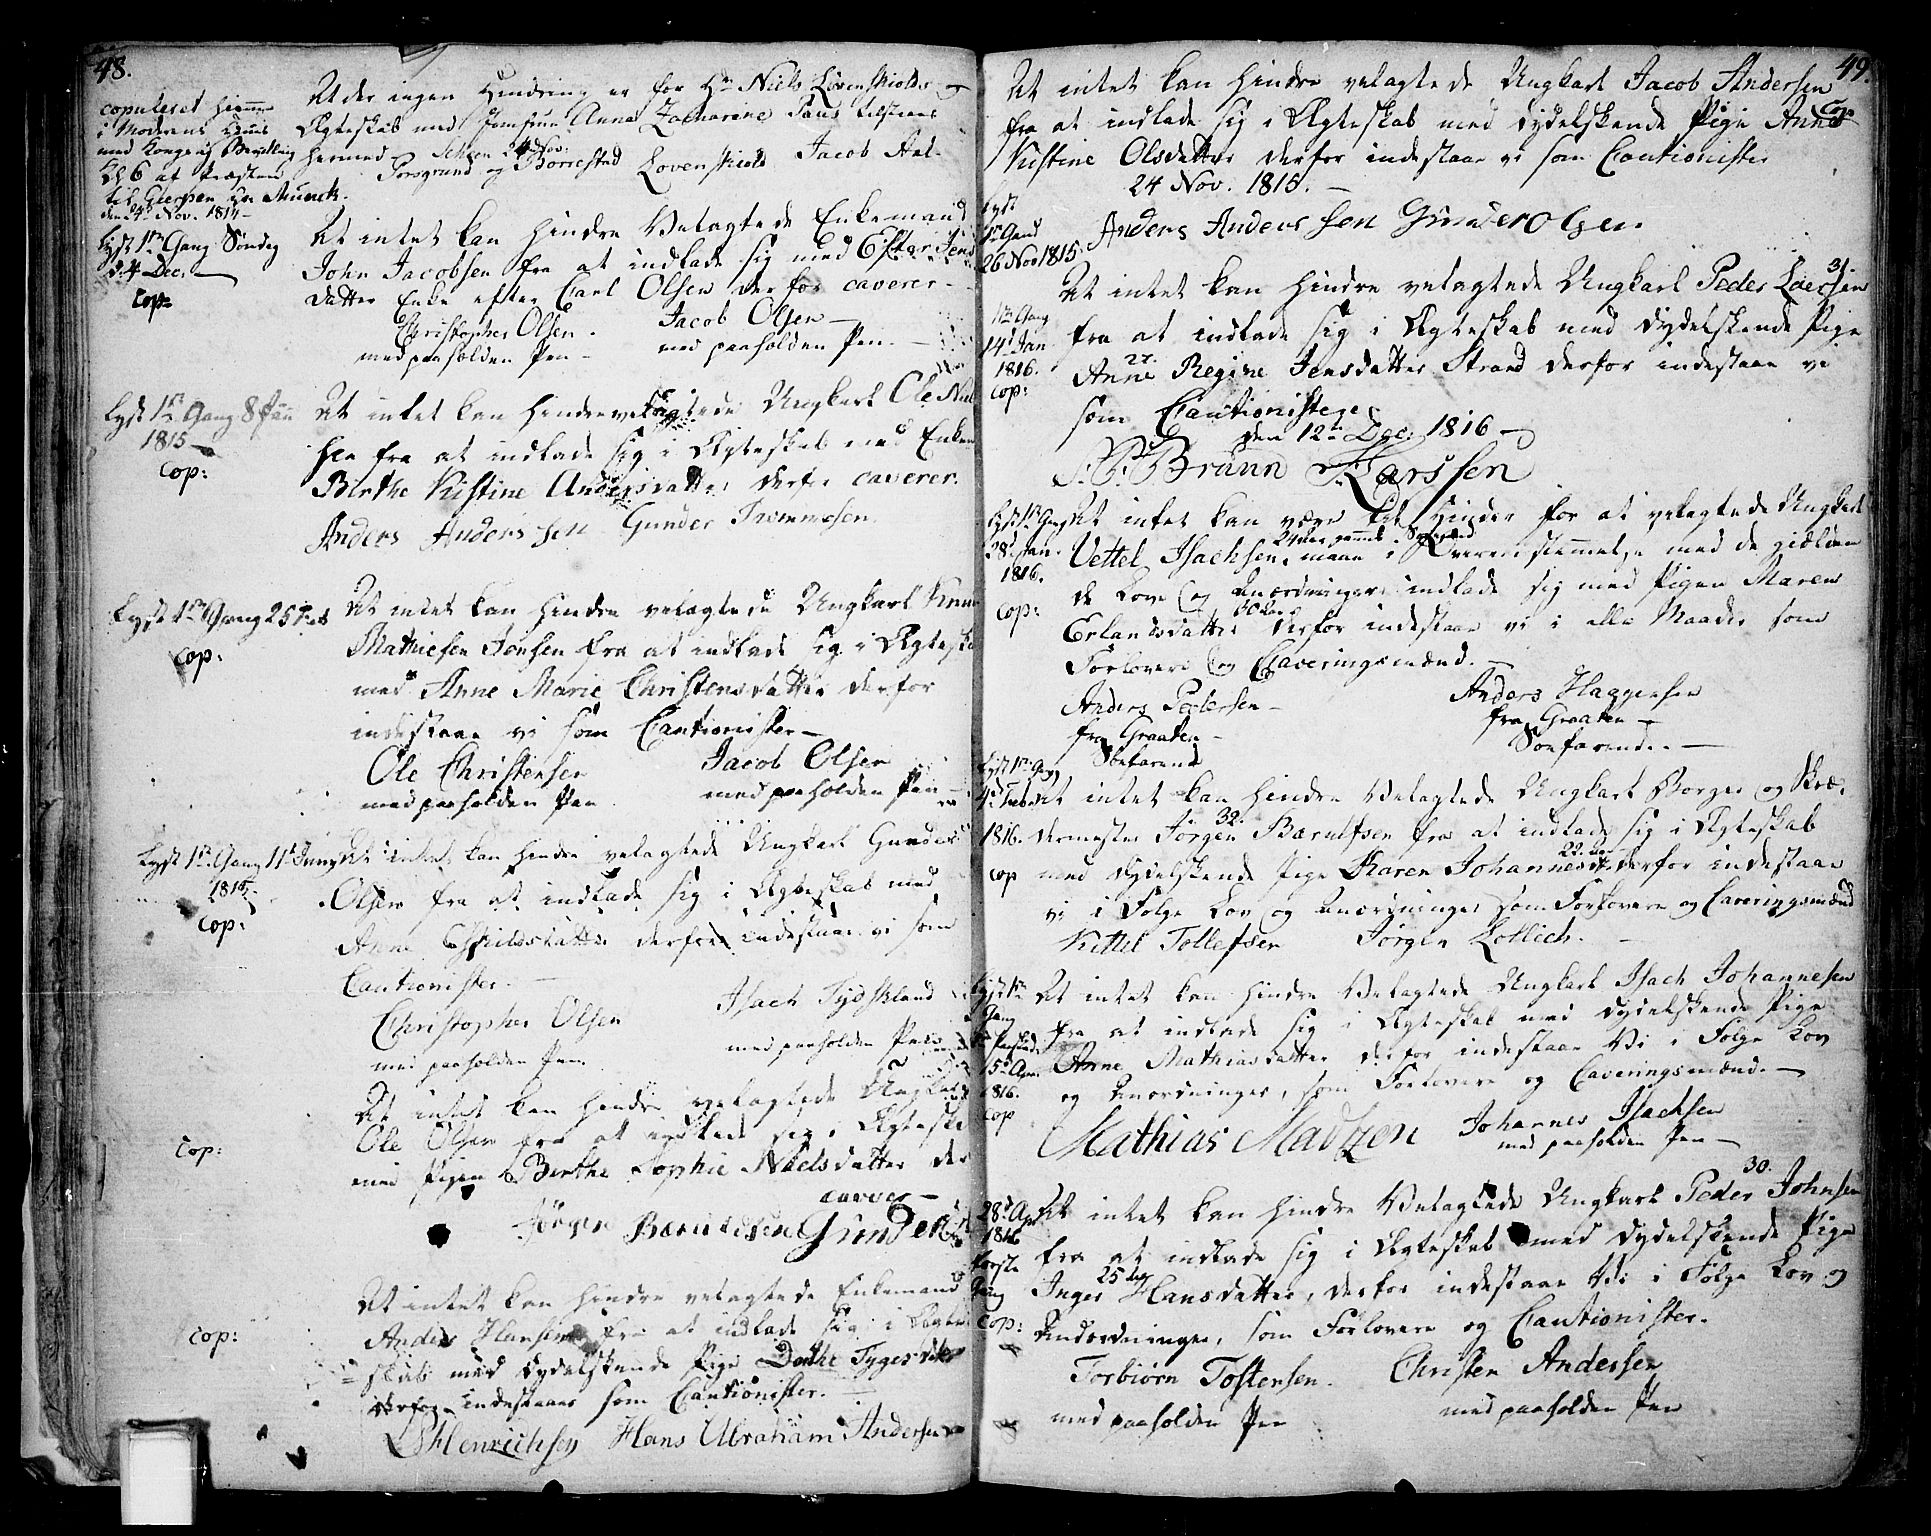 48.
copuleret hiemme
i Moderens Huus
med Kongelig Bevilling
Kl 6 af Præsten
til Gierpen Hr Munch.
den 24d Nov. 1814
At der ingen Hindring er for Hr Niels Løvenskiolds
Ægteskab med Jomfrue Anna Zacharine Paus tilstaaes
hermed Scheen 24d Nov:
Porsgrund og Borrestad Løvenskiold Jacob Aal
Lyst 1ste Gang Søndag
d. 4 Dec.
Cop:
At intet kan hindre Velagtede Enkemand
John Jacobsen fra at indlade sig med Ester Jens
datter Enke efter Carl Olsen derfor caverer
Christopher Olsen. Jacob Olsen
med paaholden Pen med paaholden Pen.
Lyst 1ste Gang 8 Jan
1815
Cop:
At intet kan hindre velagtede Ungkarl Ole Niel
sen fra at indlade sig i Ægteskab med Enken
Birthe Kistine Andersdatter derfor caverer.
Anders Andersen Gunder Trommesen.
Lyst 1ste Gang 25
Cop:
At intet kan hindre velagtede Ungkarl Knud
Mathiesen Jonsen fra at indlade sig i Ægteska
med Anne Marie Christensdatter derfor
indestaar vi som Cautionister
Ole Christensen Jacob Olsen
med paaholden Pen med paaholden Pen
Lyst 1ste Gang 11te Juny
1815.
Cop:
At intet kan hindre velagtede Ungkarl Gunder
Olsen fra at indlade sig i Ægteskab med
Anne datter derfor indestaar vi som
Cautionister.
Christopher Olsen Isach Tydskland
med paaholden Pen. med paaholden Pen
Cop:
At intet kan hindre velagtede Ungkarl
Ole Olsen fra at indlade sig i Ægteska
med Pigen Birthe Sophie Nielsdatter der
caverer
Jörgen Gunder
Cop:
At intet kan hindre velagtede Enkemand
Anders Hansen fra at indlade sig i Ægte
skab med dydelskende Pige Dorthe Tygesdatter
derfor indestaaer som Cautionister.
Henrichsen Hans Abraham Andersen
49.
At intet kan hindre velagtede Ungkarl Jacob Andersen
Cop
fra at indlade sig i Ægteskab med dydelskende Pige Anne
Kistine Olsdatter derfor indestaar vi som Cautionister
24 Nov. 1815.
Anders Andersen Gunder Olsen
Lyst
1te Gang
26 Nov 1815.
31.
At intet kan hindre velagtede Ungkarl Peder Laersen
fra at indlade sig i Ægteskab med dydelskende Pige
1ste Gang
14d Jan
1816.
Cop:
27.
Anne Regine Jensdatter Strand derfor indestaar vi
som Cautionister
den 12te Dec. 1816
Brünn Larssen
Lyst 1te Gang
28 Jan.
1816.
Cop:
At intet kan være til Hinder for at velagtede Ungkarl
24 Aar gammel
Vettel Isachsen, maae i Overensstemmelse med de gielden
de Love og Anordninger indlade sig med Pigen Maren
30 Aar
Erlandsdatter derfor indestaar vi i alle Maader som
Forlovere og Caveringsmænd.
Anders Pedersen Anders Haggensen
fra Graaten fra Graaten
Søefarende Søefarende.
Lyst 1te Gang
4d Febr
1816.
cop
At intet kan hindre Velagtede Ungkarl Borger og Skræ
32.
dermester Jørgen Barnulfsen fra at indlade sig i Ægteskab
22 Aar
med dydelskende Pige Karen Johannesd. derfor indestaar
vi i Følge Lov og Anordninger som Forlovere og Caveringsmænd
Kittel Tollefsen Jörgen Lotlich.
Lyst 1te
Gang
15d Apr.
1816.
Cop
At intet kan hindre Velagtede Ungkarl Isach Johannesen
fra at indlade sig i Ægteskab med dydelskende Pige
Anne Mathiasdatter derfor indestaar Vi i Følge Lov
og Anordninger, som Forlovere og Caveringsmænd.
Mathias Madzen Johannes Isachsen
med paaholden Pen
28d Apr
1816
første
Gang
Cop:
30.
At intet kan hindre Velagtede Ungkarl Peder Johnsen
fra at indlade sig i Ægteskab med dydelskende Pige
25 Aar
Inger Hansdatter, derfor indestaar Vi i Følge Lov og
Anordninger, som Forlovere og Cautionister.
Torbiørn Tostensen. Christen Andersen
med paaholden Pen med paaholden Pen